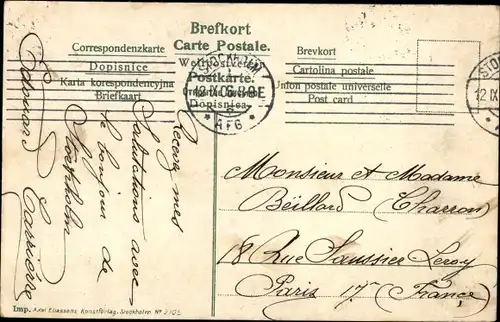 Brefkort
Carte Postale.
Weltpostverein
Postkarte.
Dopisnica
Correspondenzkarte
Dopisnice
Karta korespondencyjna
Briefkaart
Brevkort
Cartolina postale
Union postale universelle
Post card
STOCKHOLM
12 IX 06 8.9E
* AFG *
STO
12 IX
Recevez mes
Salutations avec
le bonjour de
Stockholm
Edouard Carrière
Monsieur et Madame
Beïllard (Charron)
18 Rue Saussier Leroy
Paris 17e (France)
Imp. Axel Eliassons Konstförlag, Stockholm Nº 2105